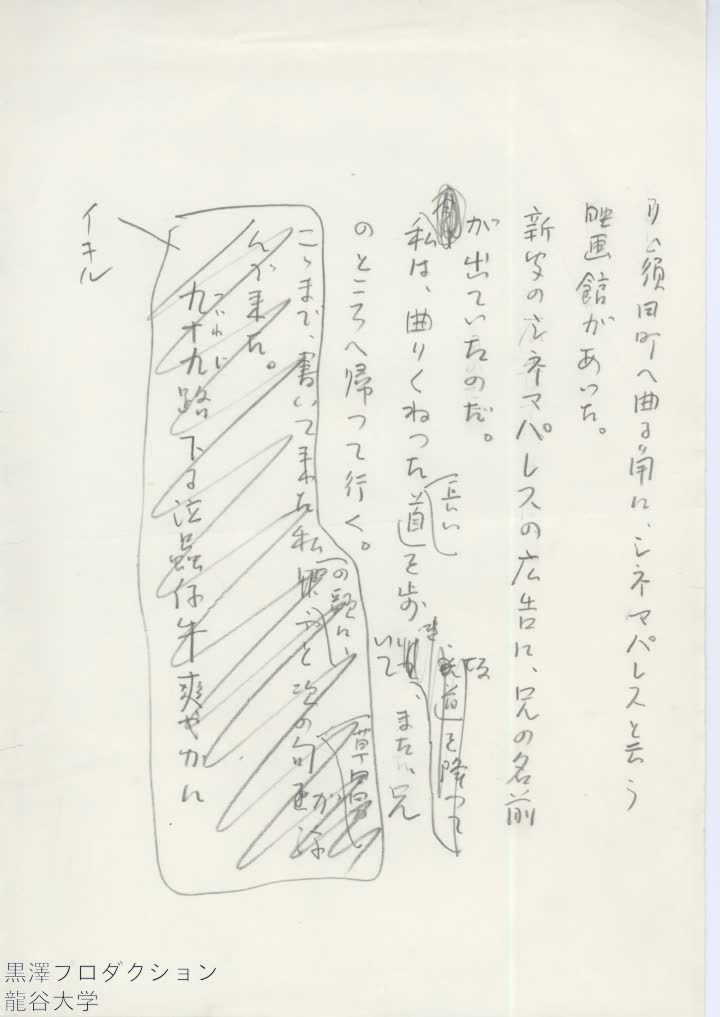 り、須田町へ曲る角に、シネマパレスと云う
映画館があった。
新宿のシネマパレスの広告に、兄の名前
が出ていたのだ。
私は、曲りくねった長い道を歩き、坂道を降って
いて、また、兄
のところへ帰って行く。
こゝまで、書いて来た私の頭に、ふと次の句が浮
んで来た。
草田男
つづれじ
九十九路下る泣蟲仔牛爽やかに
イキル
黒澤プロダクション
龍谷大学